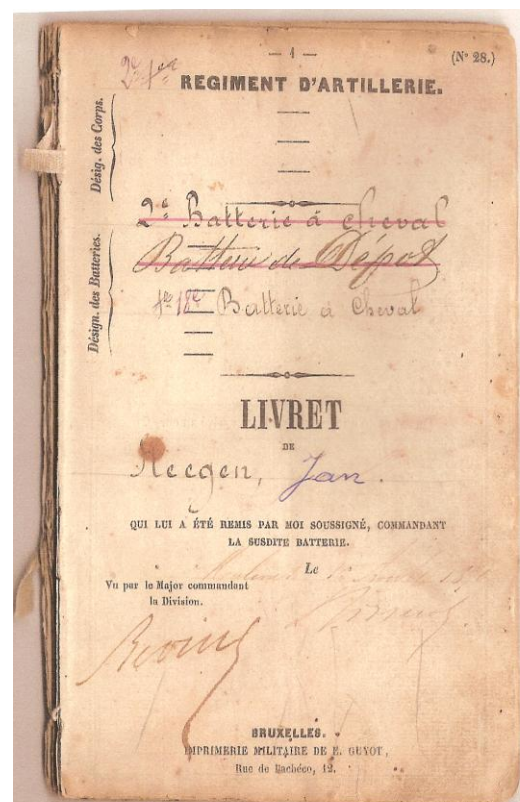 — 1 —
(N° 28.)
2e
REGIMENT D'ARTILLERIE.
Désig. des Corps.
2e Batterie à cheval
Batterie de Dépôt
18e Batterie à Cheval
Désign. des Batteries.
LIVRET
DE
Jan.
QUI LUI A ÉTÉ REMIS PAR MOI SOUSSIGNÉ, COMMANDANT
LA SUSDITE BATTERIE.
Le
Vu par le Major commandant
la Division.
BRUXELLES.
IMPRIMERIE MILITAIRE DE E. GUYOT,
Rue de Pachéco, 12.